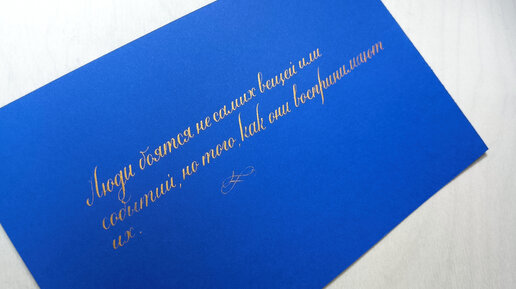 Люди боятся не самих вещей или
событий, но того, как они воспринимают
их.